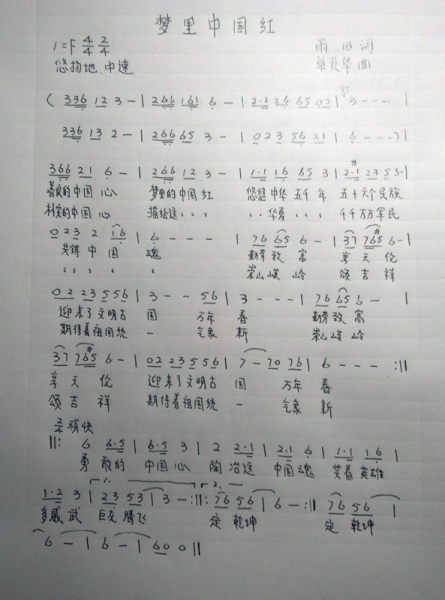 梦里中国红
1=F 4/4 2/4 雨田词
悠扬地.中速 单茂华曲
( 336 12 3 - | 266 161 6 - | 2·2 26 65 02 | 3 - - - |
336 13 2 - | 266 65 3 - | 023 56 21 | 6 - - - ) |
366 21 6 - | 266 12 3 - | 1·1 16 65 3 | 2·1 23 53· |
善良的中国心 梦里的中国红 悠悠中华五千年 五十六个民族
朴实的中国心 描绘这··· ··华夏··· 千千万万军民
023 2 16 | 6 - - - | 76 65 6 - | 37 765 6 - |
共铸中国 魂 勤劳致富 享天伦
···· · 崇山峻岭 颂吉祥
02 23 55 6 | 3 - - 56 | 3 - - - | 76 65 6 - |
迎来了文明古国 万年春 勤劳致富
期待着祖国统一 气象新 崇山峻岭
37 765 6 - | 02 23 55 6 | 7 - 70 76 | 6 - - - :||
享天伦 迎来了文明古国 万年春
颂吉祥 期待着祖国统一 气象新
柔稍快
||: 6 6·5 | 6·5 3 | 2 2·1 | 2·1 6 | 1·1 16 |
勇敢的 中国心 陶冶这 中国魂 笑看英雄
1·2 3 | 23 53 | 3 - :||: 76 56 | 6 - :|| 76 56 |
多威武 巨龙腾飞 定乾坤 定乾坤
6 - | 6 - | 60 0 ||